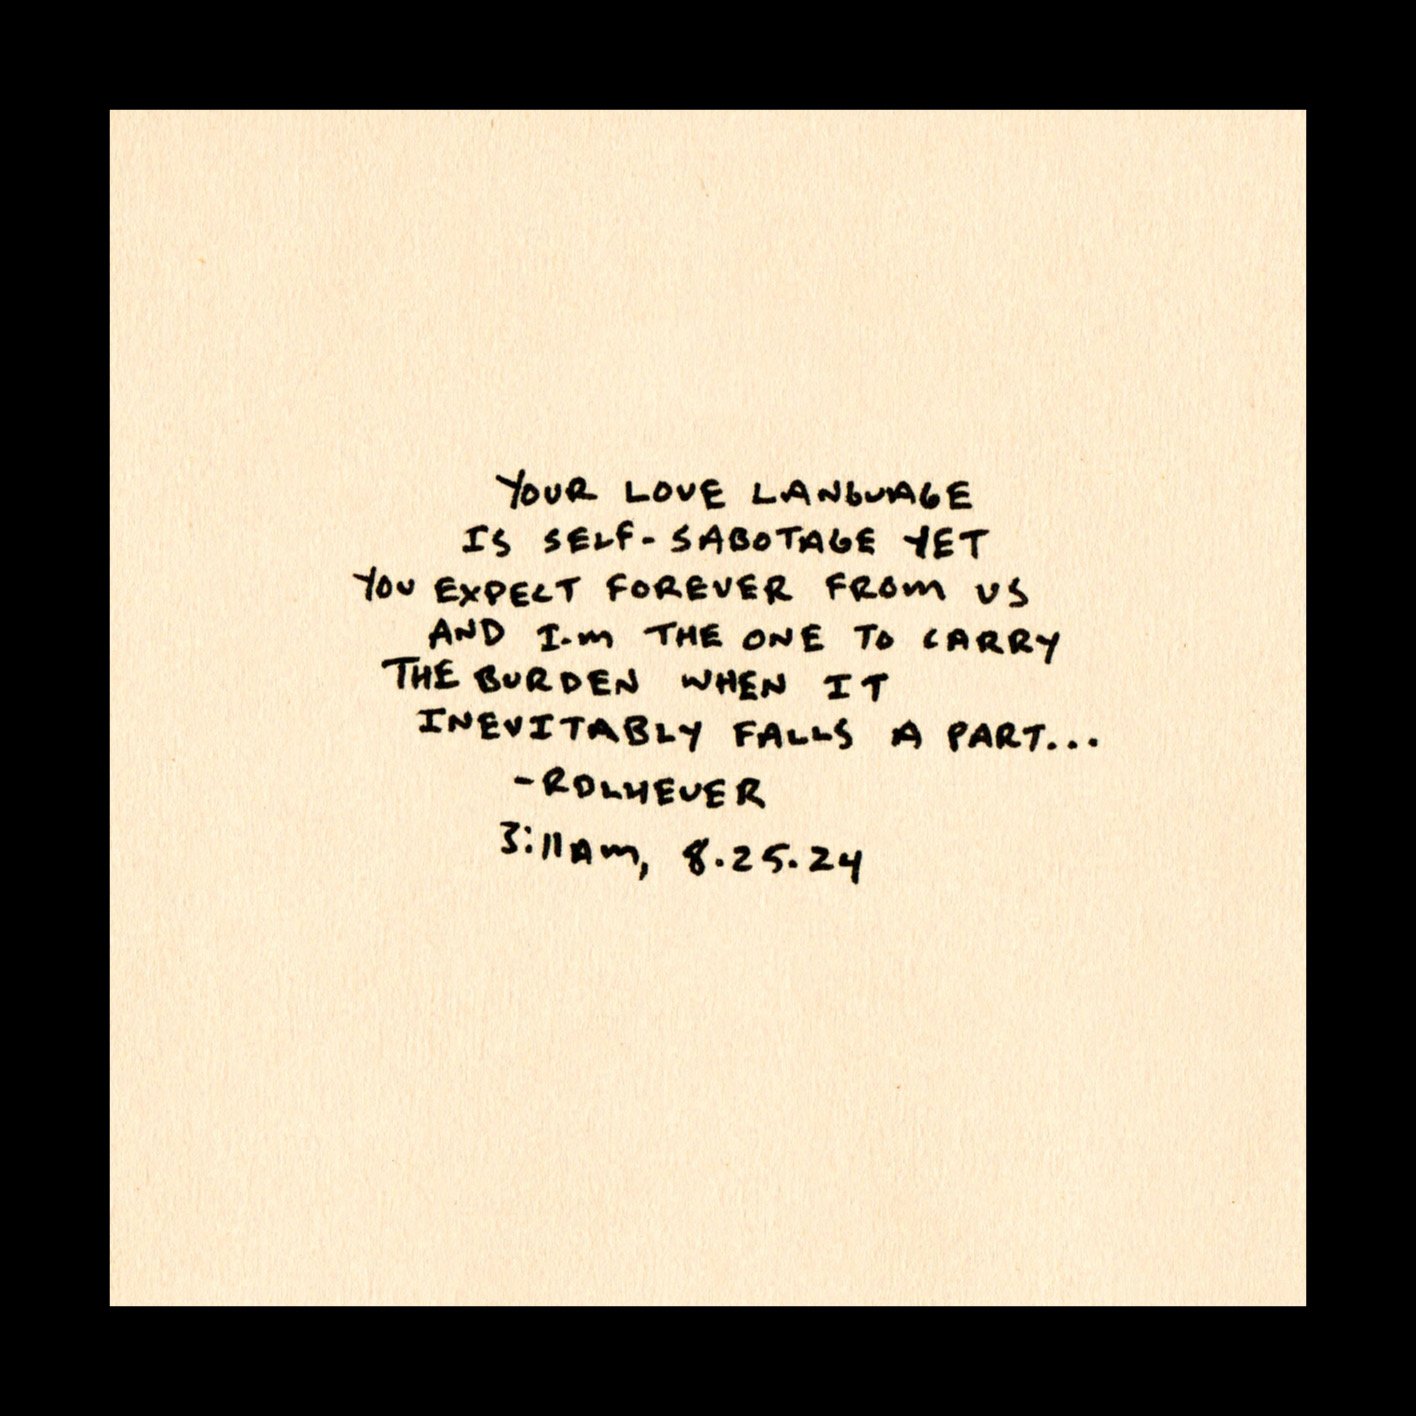 YOUR LOVE LANGUAGE
IS SELF-SABOTAGE YET
YOU EXPECT FOREVER FROM US
AND I-M THE ONE TO CARRY
THE BURDEN WHEN IT
INEVITABLY FALLS A PART...
-RDLHEVER
3:11AM, 8.25.24